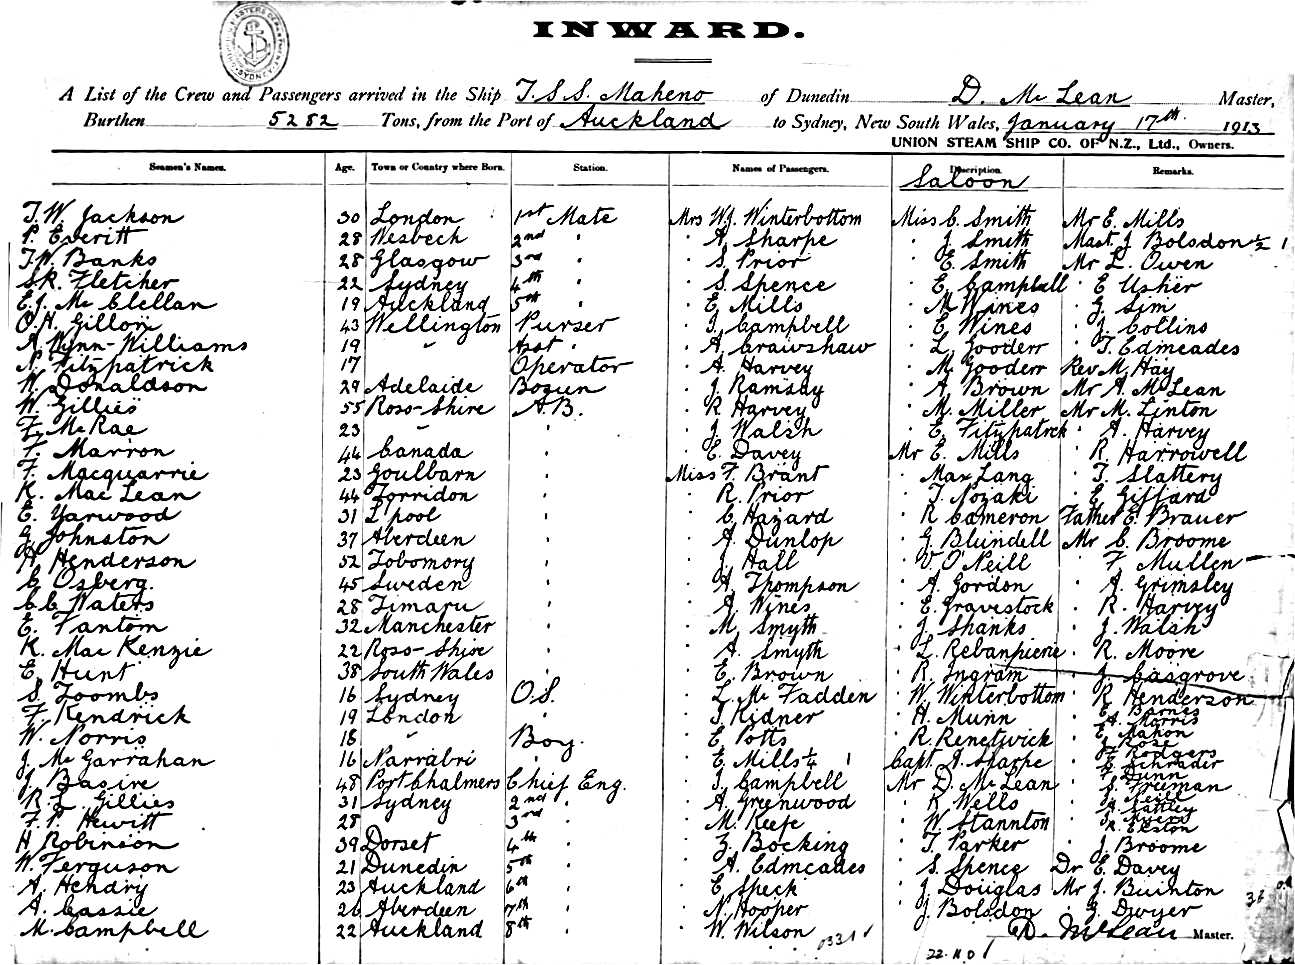 INWARD.
A List of the Crew and Passengers arrived in the Ship T.S.S. Maheno of Dunedin D. McLean Master,
Burthen 5282 Tons, from the Port of Auckland to Sydney, New South Wales, January 17th 1913
UNION STEAM SHIP CO. OF N.Z., Ltd., Owners.
Seamen's Names. Age. Town or Country where Born. Station. Names of Passengers. Description. Remarks.
Saloon
T.W. Jackson 30 London 1st Mate Mrs W.J. Winterbottom Miss C. Smith Mr E. Mills
P. Everitt 28 Wesbech 2nd " " A Sharpe " J Smith Mast. J Bolsdon ½ 1
T.W. Banks 28 Glasgow 3rd " " S. Prior " E. Smith Mr L. Owen
S.R. Fletcher 22 Sydney 4th " " S. Spence " E Campbell " E Usher
E.J. McClellan 19 Auckland 5th " " E Mills " M Wines " G. Sim
O.H. Gillon 43 Wellington Purser " J. Campbell " E Wines " J. Collins
A Wynn-Williams 19 " Asst " " A Crawshaw " L Gooderr " T. Edmeades
N. Fitzpatrick 17 Operator " A. Harvey " M. Gooderr Rev M. Hay
W. Donaldson 29 Adelaide Bosun " J. Ramsay " A. Brown Mr A. McLean
W. Gillies 55 Ross-Shire A.B. " R Harvey " M. Miller Mr M. Linton
F. McRae 23 " " " J. Walsh " E. Fitzpatrck " A. Harvey
F. Marron 44 Canada " " E. Davey Mr E. Mills " R. Harrowell
F. Macquarrie 23 Goulbarn " Miss F. Brant " Max Lang " T. Slattery
K. MacLean 44 Torridon " " R. Prior " T. Nozaki " E Giffard
E. Yarwood 31 L'pool " " C Hazard " R Cameron Father E. Brauer
J. Johnston 37 Aberdeen " " A Dunlop " G Blundell Mr C. Broome
H Henderson 52 Tobomory " " J Hall " V O'Neill " F Mullen
C Osberg. 45 Sweden " " A. Thompson " A. Gordon " A. Grimsley
C.C. Waters 28 Timaru " " A. Wines " E. Gravestock " R. Harvey
E. Fantom 32 Manchester " " M. Smyth " J. Shanks " J. Walsh
K. MacKenzie 22 Ross-Shire " " A. Smyth " L. Rebanpierie " R. Moore
E Hunt 38 South Wales " " E Brown " R. Ingram " J. Casgrove
S. Toombs 16 Sydney O.S. " L. McFadden " W. Winterbottom " R Henderson
F. Kendrick 19 London " " T. Kidner " H. Munn " E Barnes
" A. Morris
W. Norris 18 " Boy. " E Potts " R. Renetwick " E Mahon
" J. Rose
J. McGarrahan 16 Narrabri " " E Mills ¼ 1 Capt. A. Sharpe " F Rodgers
" E Schrader
J. Basire 48 Port Chalmers Chief Eng. " J Campbell Mr D. McLean " F. Dunn
" S. Freeman
R.L. Gillies 31 Sydney 2nd " " A. Greenwood " K Wells " J. Neill
F.P. Hewitt 28 3rd " " M. Keefe " W Stannton " R. Elston
H Robinson 39 Dorset 4th " " Z. Bocking " T. Parker " J Broome
W. Ferguson 21 Dunedin 5th " " A. Edmeades " S. Spence Dr E. Davey
A. Hendry 23 Auckland 6th " " E Speck " J Douglas Mr J. Buinton
A. Cassie 26 Aberdeen 7th " " N. Hooper " J Bolsdon " J. Dwyer
M. Campbell 22 Auckland 8th " " W. Wilson D. McLean Master.